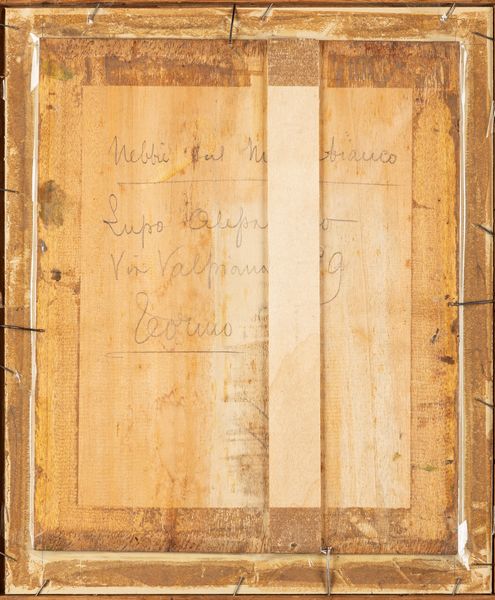 Nebbie sul M bianco
Lupo Alessa o
Via Valpiana 9
Torino